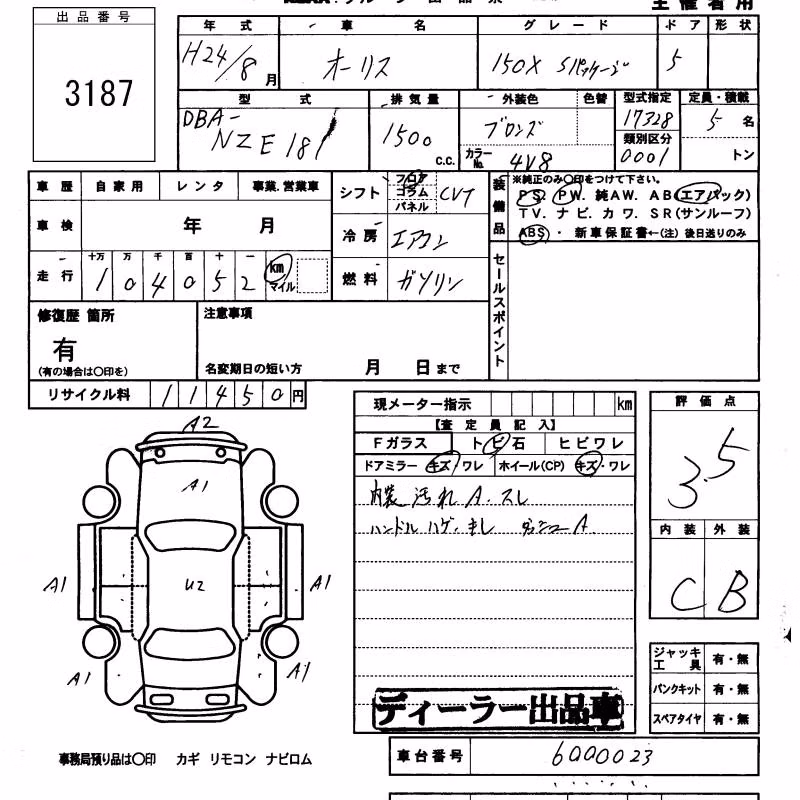 主催者用
出品番号
3187
年式 車名 グレード ドア 形状
H24/8月 オーリス 150X Sパッケージ 5
型式 排気量 外装色 色替 型式指定 定員・積載
DBA-NZE181 1500 c.c. ブロンズ 17328 5名
カラーNo. 4V8 類別区分 0001 トン
車歴 自家用 レンタ 事業.営業車
シフト フロア コラム パネル CVT
装備品 ※純正のみ〇印をつけて下さい。
PS. PW. 純AW. AB(エアバック)
TV. ナビ. カワ. SR(サンルーフ)
ABS ・ 新車保証書←(注) 後日送りのみ
車検 年 月
冷房 エアコン
走行 十万 万 千 百 十 一 km マイル
104052
燃料 ガソリン
セールスポイント
修復歴 箇所
有
(有の場合は〇印を)
注意事項
名変期日の短い方 月 日まで
リサイクル料 11450円
現メーター指示 km
【査定員記入】
Fガラス トビ石 ヒビワレ
ドアミラー キズ・ワレ ホイール(CP) キズ・ワレ
内装 汚れ A. スレ
ハンドル ハゲ・キレ ダッシュ A
評価点
3.5
内装 外装
C B
A2
A1
A1 U2 A1
A1 A1
ジャッキ工具 有・無
パンクキット 有・無
スペアタイヤ 有・無
ディーラー出品車
事務局預り品は〇印 カギ リモコン ナビロム
車台番号 6000023